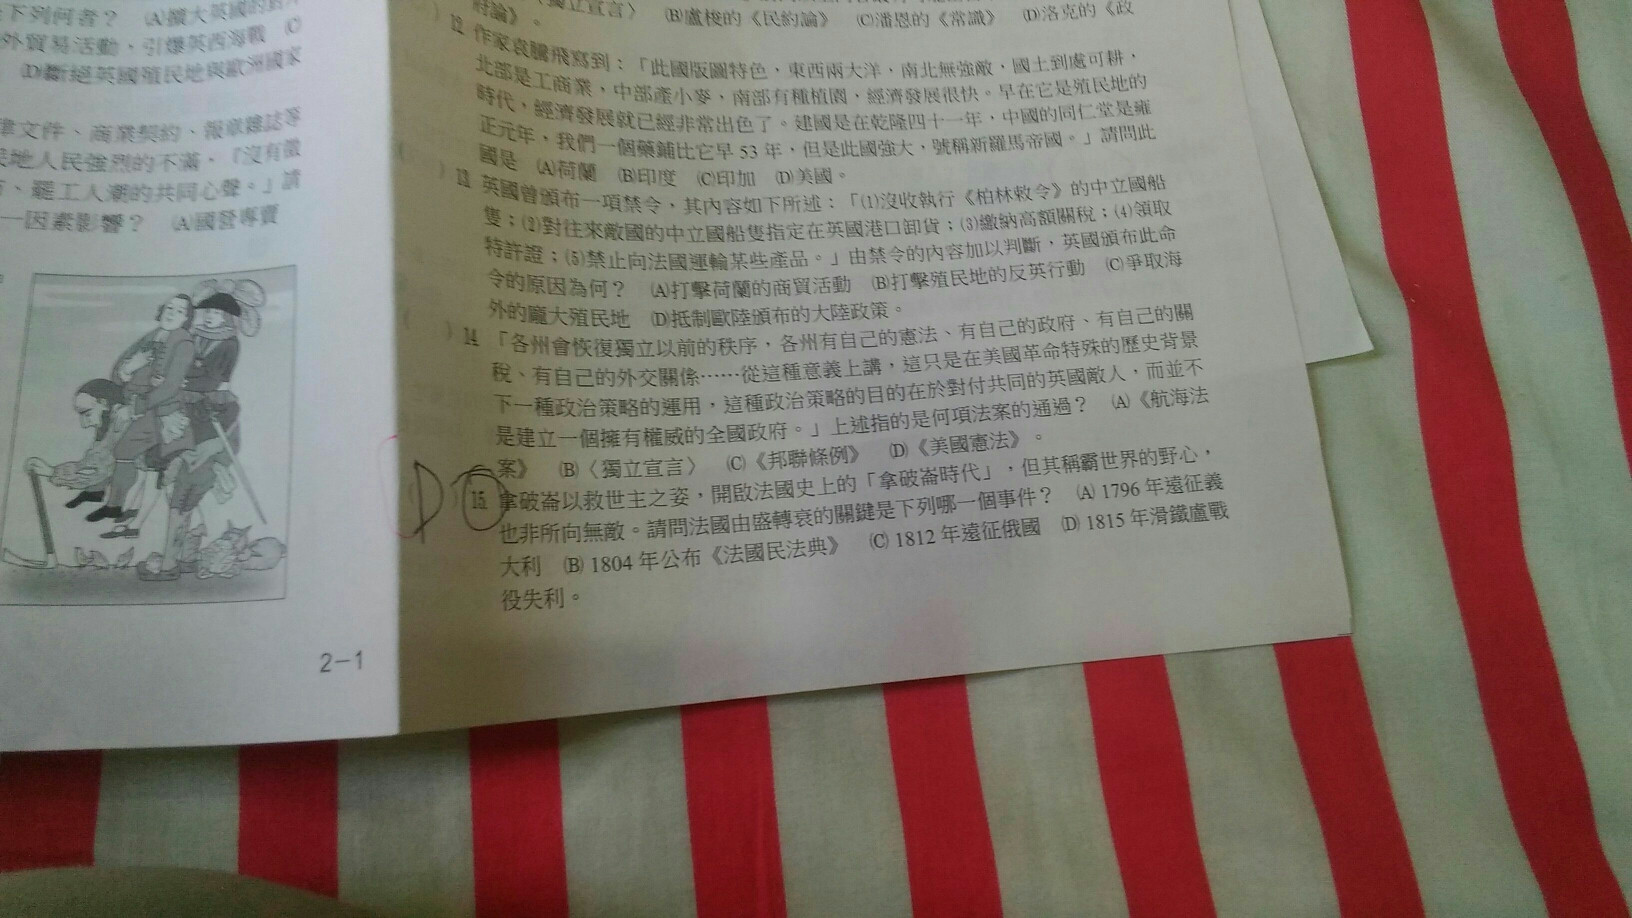 下列何者? (A)擴大英國的
外貿易活動,引爆英西海戰 (C
(D)斷絕英國殖民地與歐洲國家
律文件、商業契約、報章雜誌等
民地人民強烈的不滿,「沒有徵
、罷工人潮的共同心聲。」請
一因素影響? (A)國營專賣
2-1
獨立宣言〉 (B)盧梭的《民約論》 (C)潘恩的《常識》 (D)洛克的《政
府論》。
12 作家袁騰飛寫到:「此國版圖特色,東西兩大洋,南北無強敵,國土到處可耕,
北部是工商業,中部產小麥,南部有種植園,經濟發展很快。早在它是殖民地的
時代,經濟發展就已經非常出色了。建國是在乾隆四十一年,中國的同仁堂是雍
正元年,我們一個藥鋪比它早 53 年,但是此國強大,號稱新羅馬帝國。」請問此
國是 (A)荷蘭 (B)印度 (C)印加 (D)美國。
( )13 英國曾頒布一項禁令,其內容如下所述:「(1)沒收執行《柏林敕令》的中立國船
隻;(2)對往來敵國的中立國船隻指定在英國港口卸貨;(3)繳納高額關稅;(4)領取
特許證;(5)禁止向法國運輸某些產品。」由禁令的內容加以判斷,英國頒布此命
令的原因為何? (A)打擊荷蘭的商貿活動 (B)打擊殖民地的反英行動 (C)爭取海
外的龐大殖民地 (D)抵制歐陸頒布的大陸政策。
( )14 「各州會恢復獨立以前的秩序,各州有自己的憲法、有自己的政府、有自己的關
稅、有自己的外交關係……從這種意義上講,這只是在美國革命特殊的歷史背景
下一種政治策略的運用,這種政治策略的目的在於對付共同的英國敵人,而並不
是建立一個擁有權威的全國政府。」上述指的是何項法案的通過? (A)《航海法
案》 (B)〈獨立宣言〉 (C)《邦聯條例》 (D)《美國憲法》。
(D)15 拿破崙以救世主之姿,開啟法國史上的「拿破崙時代」,但其稱霸世界的野心,
也非所向無敵。請問法國由盛轉衰的關鍵是下列哪一個事件? (A) 1796 年遠征義
大利 (B) 1804 年公布《法國民法典》 (C) 1812 年遠征俄國 (D) 1815 年滑鐵盧戰
役失利。